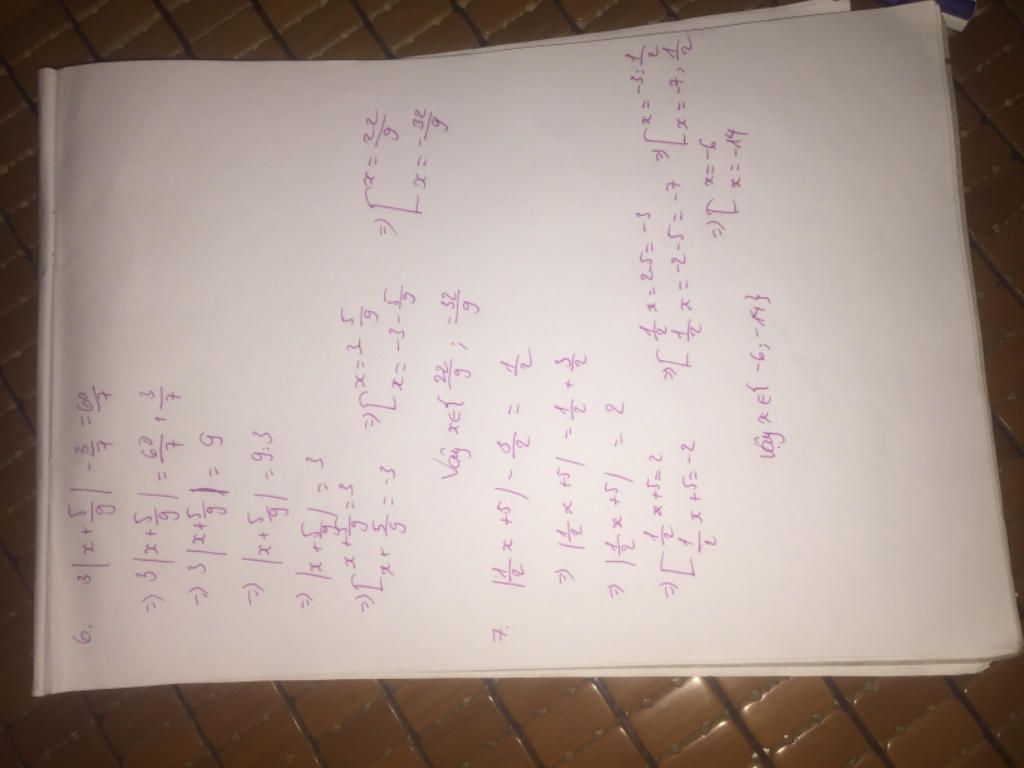 6. 3|x + 5/9| - 3/7 = 60/7
=) 3|x + 5/9| = 60/7 + 3/7
=) 3|x + 5/9| = 9
=) |x + 5/9| = 9:3
=) |x + 5/9| = 3
=) [ x + 5/9 = 3 =) [ x = 3 5/9 =) [ x = 22/9
x + 5/9 = -3 x = -3 - 5/9 x = -32/9
Vậy x ∈ { 22/9 ; -32/9
7. |1/2 x + 5| - 3/2 = 1/2
=) |1/2 x + 5| = 1/2 + 3/2
=) |1/2 x + 5| = 2
=) [ 1/2 x + 5 = 2 =) [ 1/2 x = 2-5 = -3 =) [ x = -3 : 1/2
1/2 x + 5 = -2 1/2 x = -2 - 5 = -7 x = -7 : 1/2
=) [ x = -6
x = -14
Vậy x ∈ { -6 ; -14 }